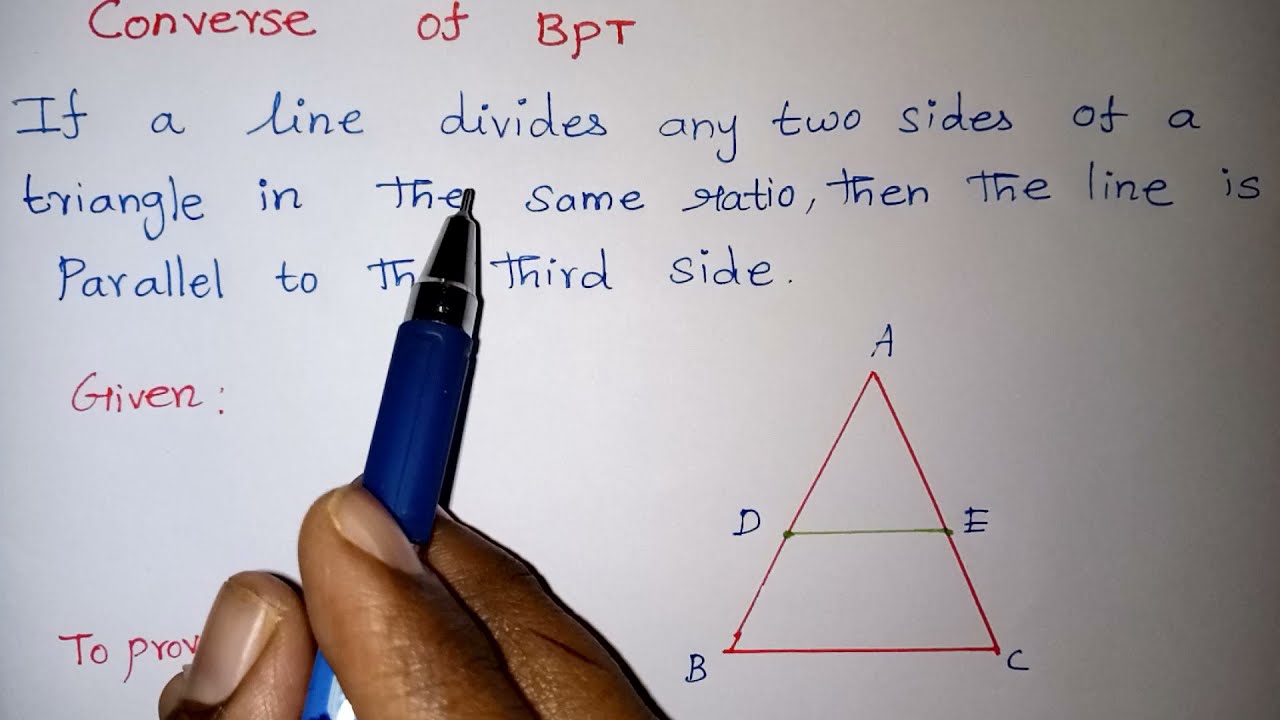 Converse of BPT
If a line divides any two sides of a
triangle in the same ratio, then the line is
Parallel to third side.
Given:
A
D E
To
B C